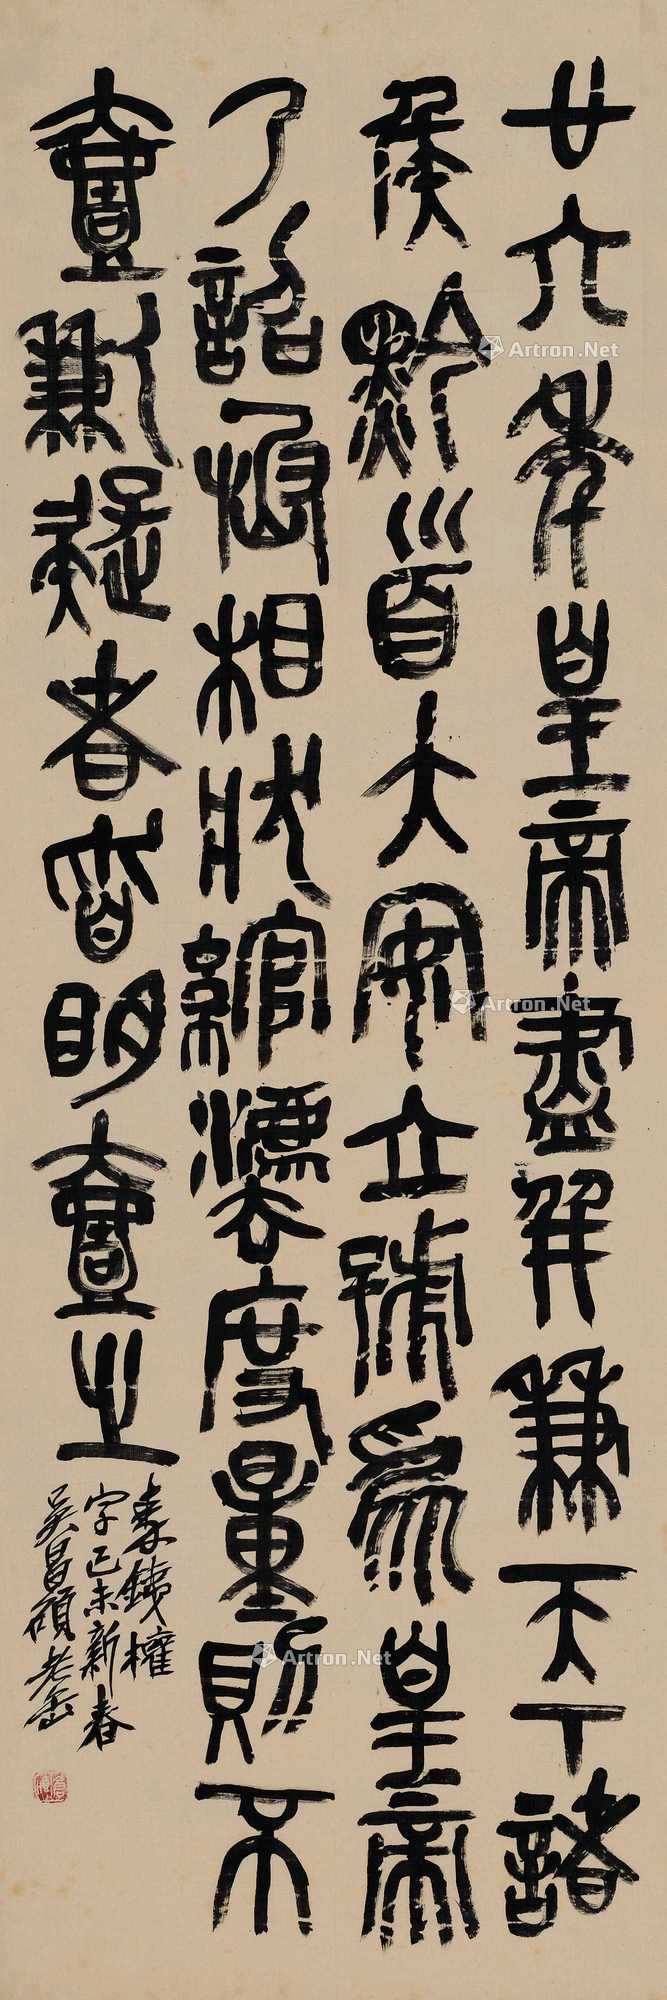 廿六年皇帝盡并兼天下諸
侯黔首大安立號爲皇帝
乃詔丞相狀綰灋度量則不
壹歉疑者皆明壹之
秦銕權
字己未新春
吳昌碩老缶
Artron.Net
Artron.Net
Artron.Net